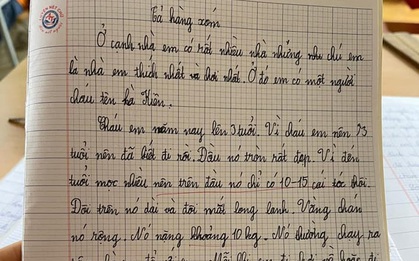 Tả hàng xóm
Ở cạnh nhà em có rất nhiều nhà nhưng nhà chú em
là nhà em thích nhất và chơi nhất. Ở đó em có một người
cháu tên hà Hiền.
Cháu em năm nay lên 3 tuổi. Vì cháu em nên 23
tuổi nên đã biết đi rồi. Đầu nó tròn rất đẹp. Vì đến
tuổi mọc nhiều nên trên đầu nó chỉ có 10-15 cái tóc thôi.
Đôi trên nó dài và đôi mắt long lanh. Vầng chán
nó rộng. Nó nặng khoảng 10 kg. Nó thường chạy ra